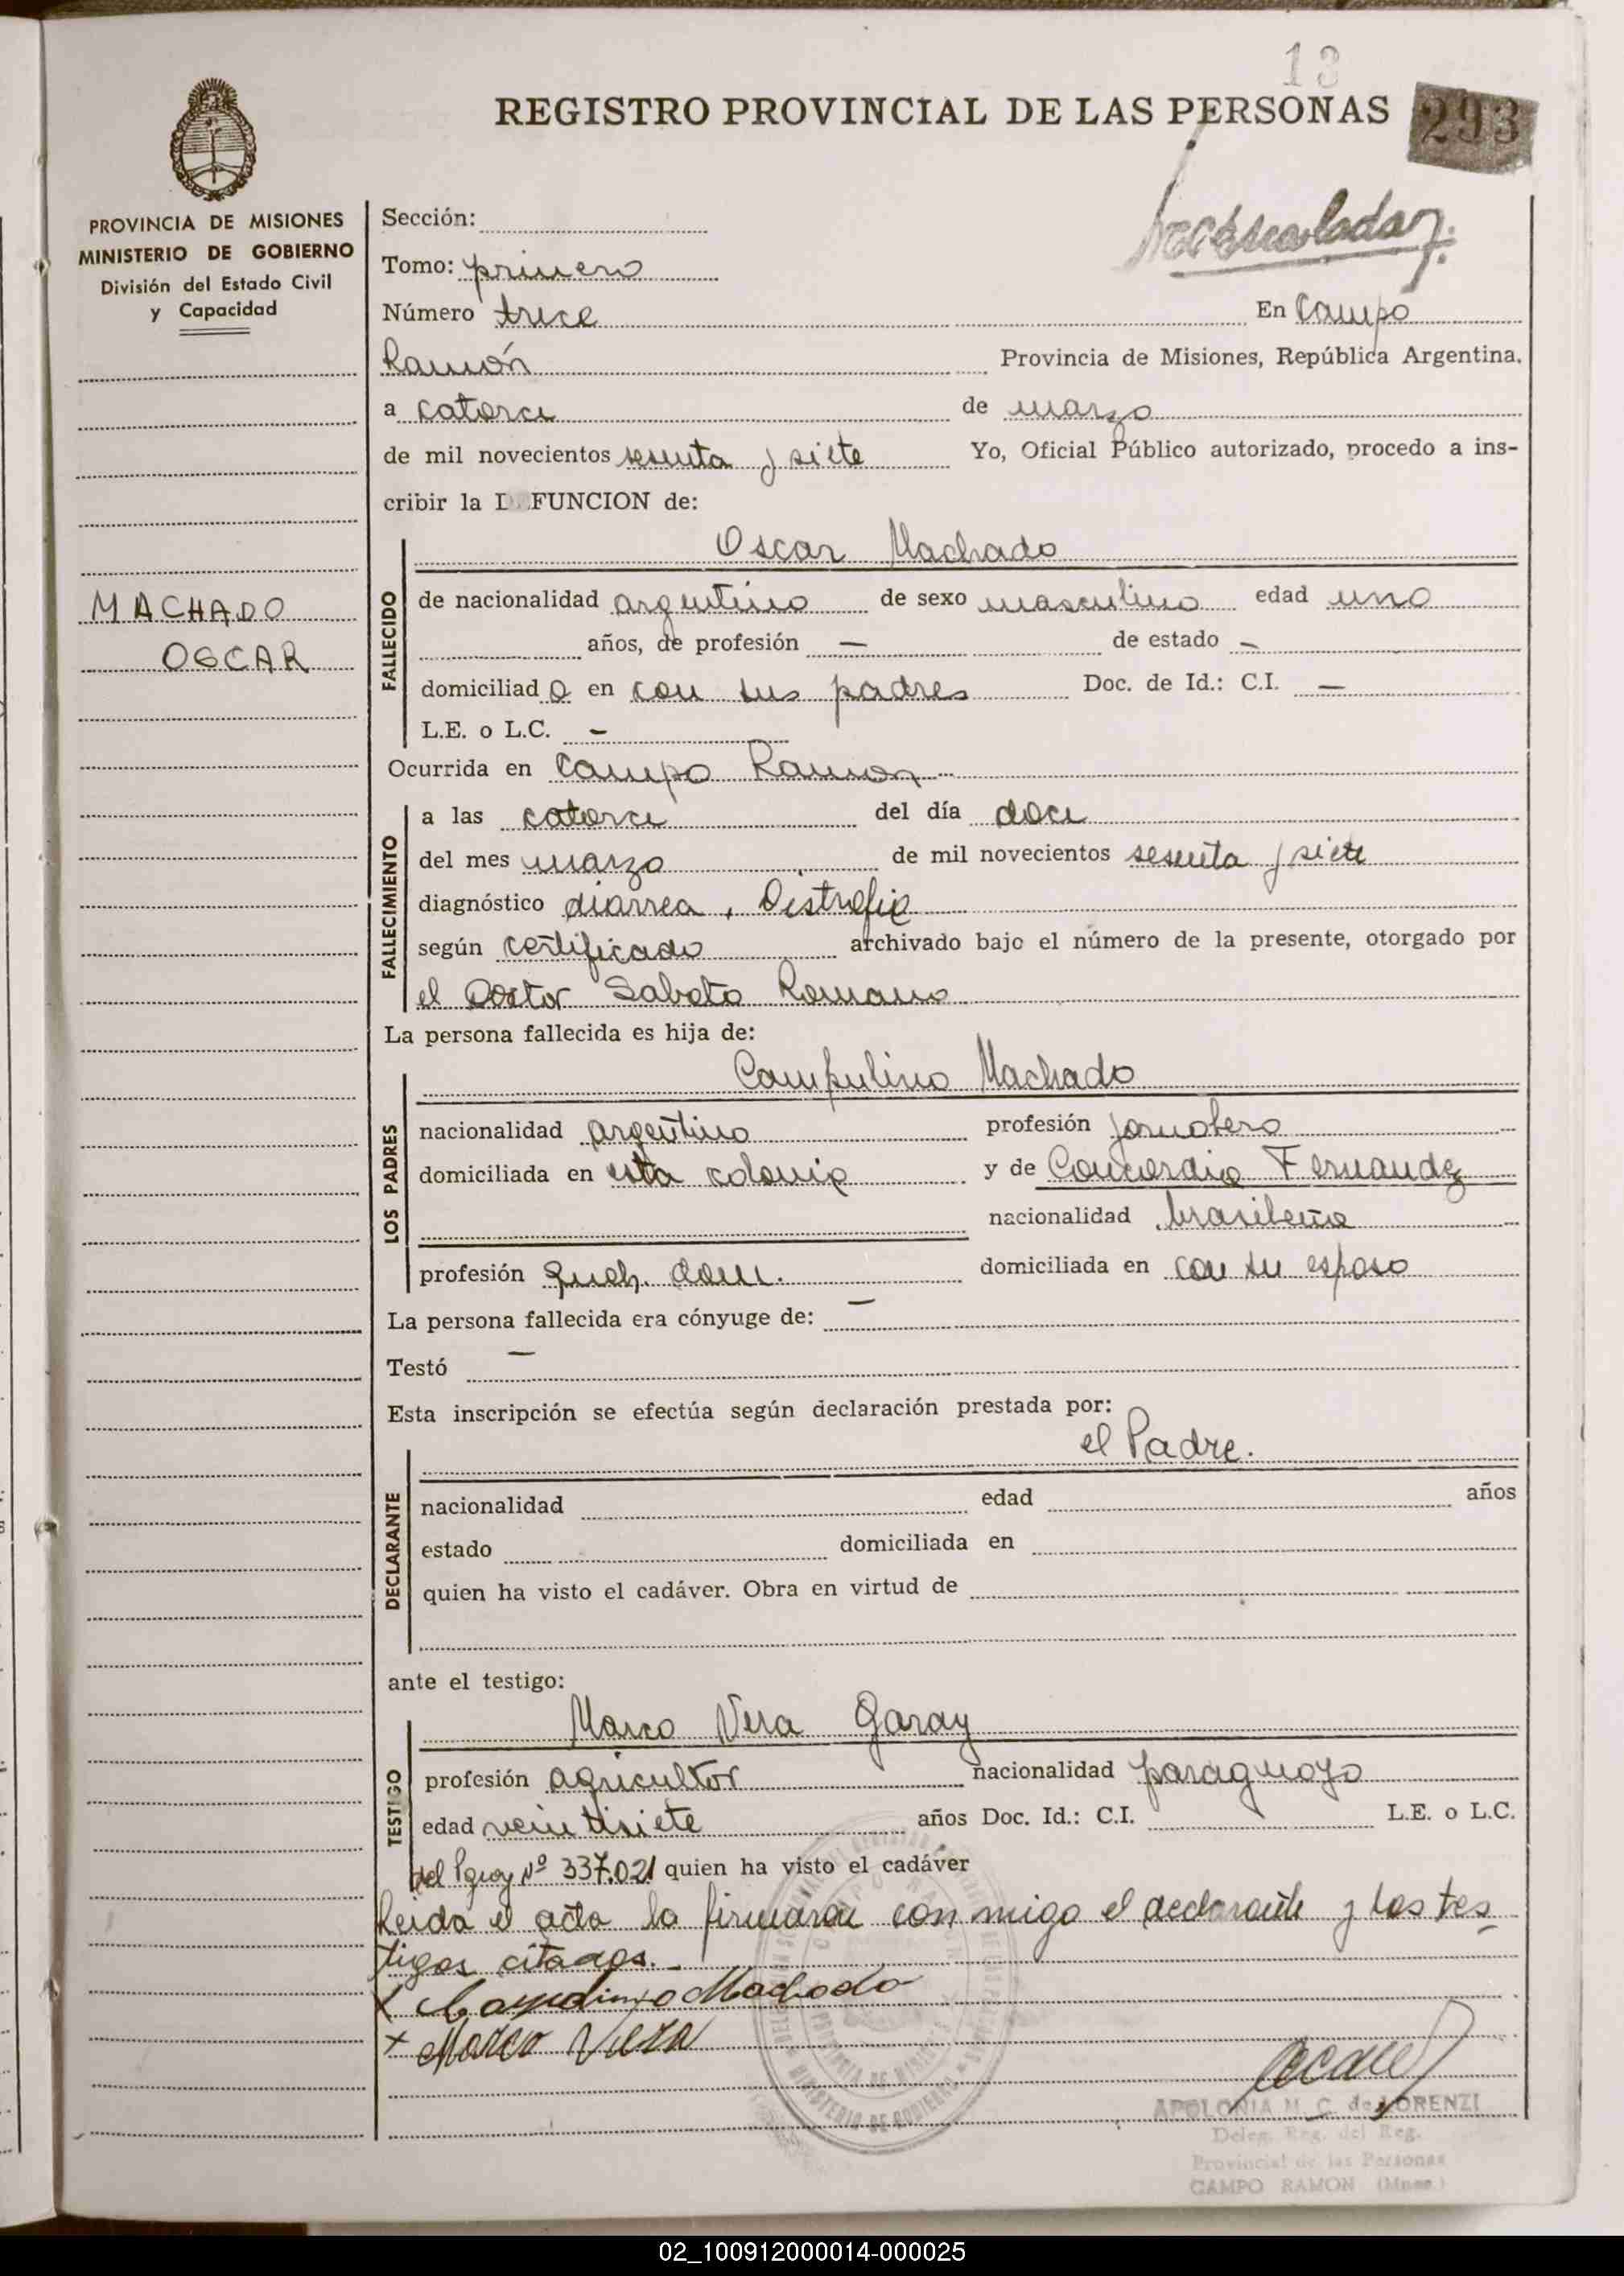 13
REGISTRO PROVINCIAL DE LAS PERSONAS 293
PROVINCIA DE MISIONES
MINISTERIO DE GOBIERNO
División del Estado Civil
y Capacidad
MACHADO
OSCAR
Sección:
Tomo: primero
Número trece En Campo
Ramón Provincia de Misiones, República Argentina.
a catorce de marzo
de mil novecientos sesenta y siete Yo, Oficial Público autorizado, procedo a ins-
cribir la DEFUNCION de:
Oscar Machado
FALLECIDO
de nacionalidad argentino de sexo masculino edad uno
años, de profesión — de estado —
domiciliado en con sus padres Doc. de Id.: C.I. —
L.E. o L.C. —
Ocurrida en Campo Ramon
FALLECIMIENTO
a las catorce del día doce
del mes marzo de mil novecientos sesenta y siete
diagnóstico diarrea, Distrofia
según certificado archivado bajo el número de la presente, otorgado por
el Doctor Sabato Romano
La persona fallecida es hija de:
Machado
LOS PADRES
nacionalidad argentino profesión jornalero
domiciliada en esta colonia y de Concordia Fernandez
nacionalidad brasileña
profesión Queh. dom. domiciliada en con su esposo
La persona fallecida era cónyuge de: —
Testó —
Esta inscripción se efectúa según declaración prestada por:
el Padre.
DECLARANTE
nacionalidad edad años
estado domiciliada en
quien ha visto el cadáver. Obra en virtud de
ante el testigo:
Marco Vera Garay
TESTIGO
profesión agricultor nacionalidad paraguayo
edad veintisiete años Doc. Id.: C.I. L.E. o L.C.
del Pguay Nº 337.021 quien ha visto el cadáver
Leida el acta la firmaran conmigo el declarante y los tes
tigos citados.
x Machado
x Marco Vera
APOLONIA M. C. de LORENZI
Deleg. Reg. del Reg.
Provincial de las Personas
CAMPO RAMON (Mnes.)
02_100912000014-000025